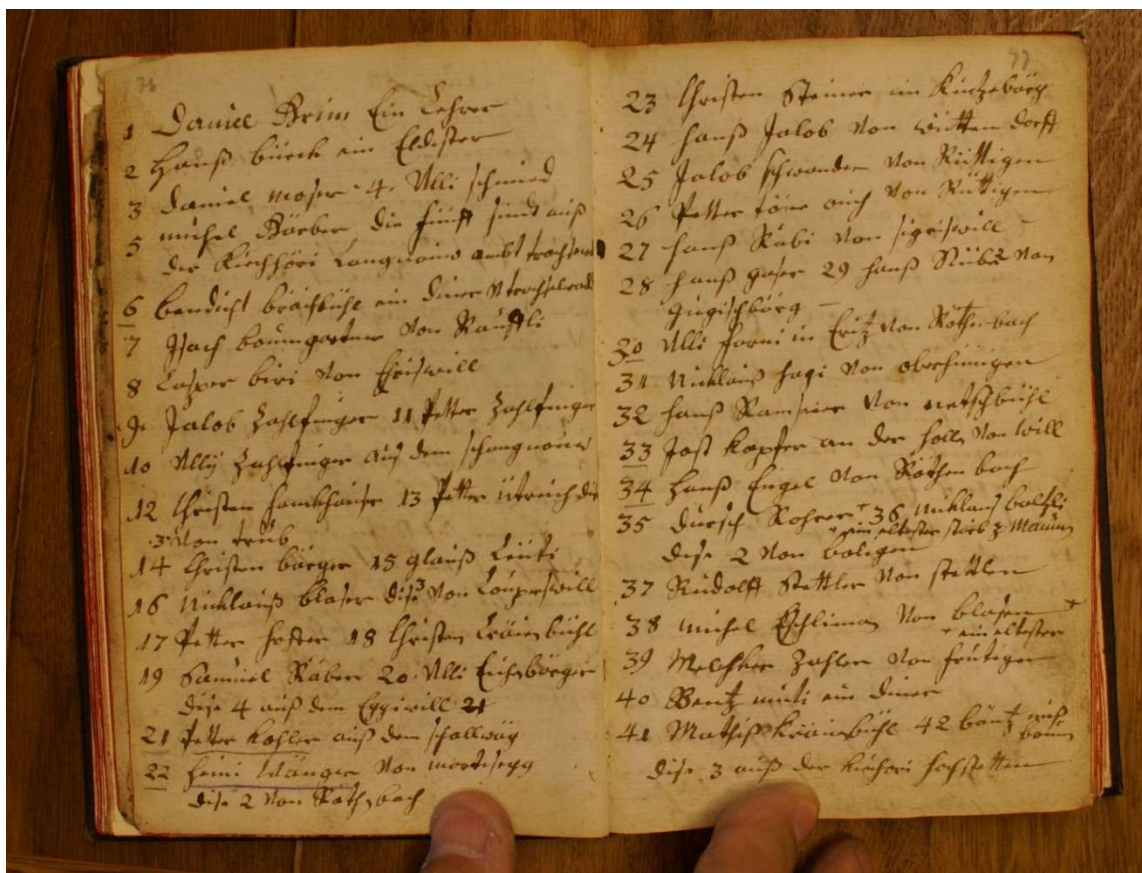 76
1 Daniel Grim Ein Lehrer
2 Hanß bürch ein Eldister
3 Daniel moser 4. Ulli schmid
5 michel Gärber die fünff sindt auß
der Kirchhöri Langnouw ambt trachselw
6 bendicht brächbühl ein diner v trachselwald
7 Isach boumgartner von
8 Casper biri von
9. Jakob Zahlfinger 11 Petter Zahlfinger
10 Ully Zahlfinger auß dem schangnouw
12 Christen 13 Petter ütrich die
3 von trub
14 Christen bärger 15 glauß Leüti
16 Nicklauß blaser dise 3 von Louperswill
17 Petter hofter 18 Christen Kräienbühl
19 Samuel Räber 20. Ulli Eichenbärger
dise 4 auß dem Eggiwill 21
21 Petter Kohler auß dem schallwäg
22 heini Wänger von mortisegg
dise 2 von Röthenbach
77
23 Christen Steiner im
24 hanß Jakob von
25 Jakob schwander von
26 Petter auch von
27 hanß von sigriswill
28 hanß gaser 29 hanß von
gugischbärg
30 Ulli in Eritz von Röthenbach
31 Nicklauß hagi von oberhünigen
32 hanß Ramseier von
33 Jost kopfer an der von will
34 hanß Engel von Röthenbach
35 dursch Rohrer + 36 Nicklaus baltzli
+ ein eltester
dise 2 von boligen
37 Rudolff Stettler von stettlen
38 michel Eschliman von blasen +
+ ein eltester
39 Melchker Zahler von frutigen
40 Bentz ein diner
41 Mathiß Kräienbühl 42 bäntz nuß
boum
dise 3 auß der kirchöri hochstetten